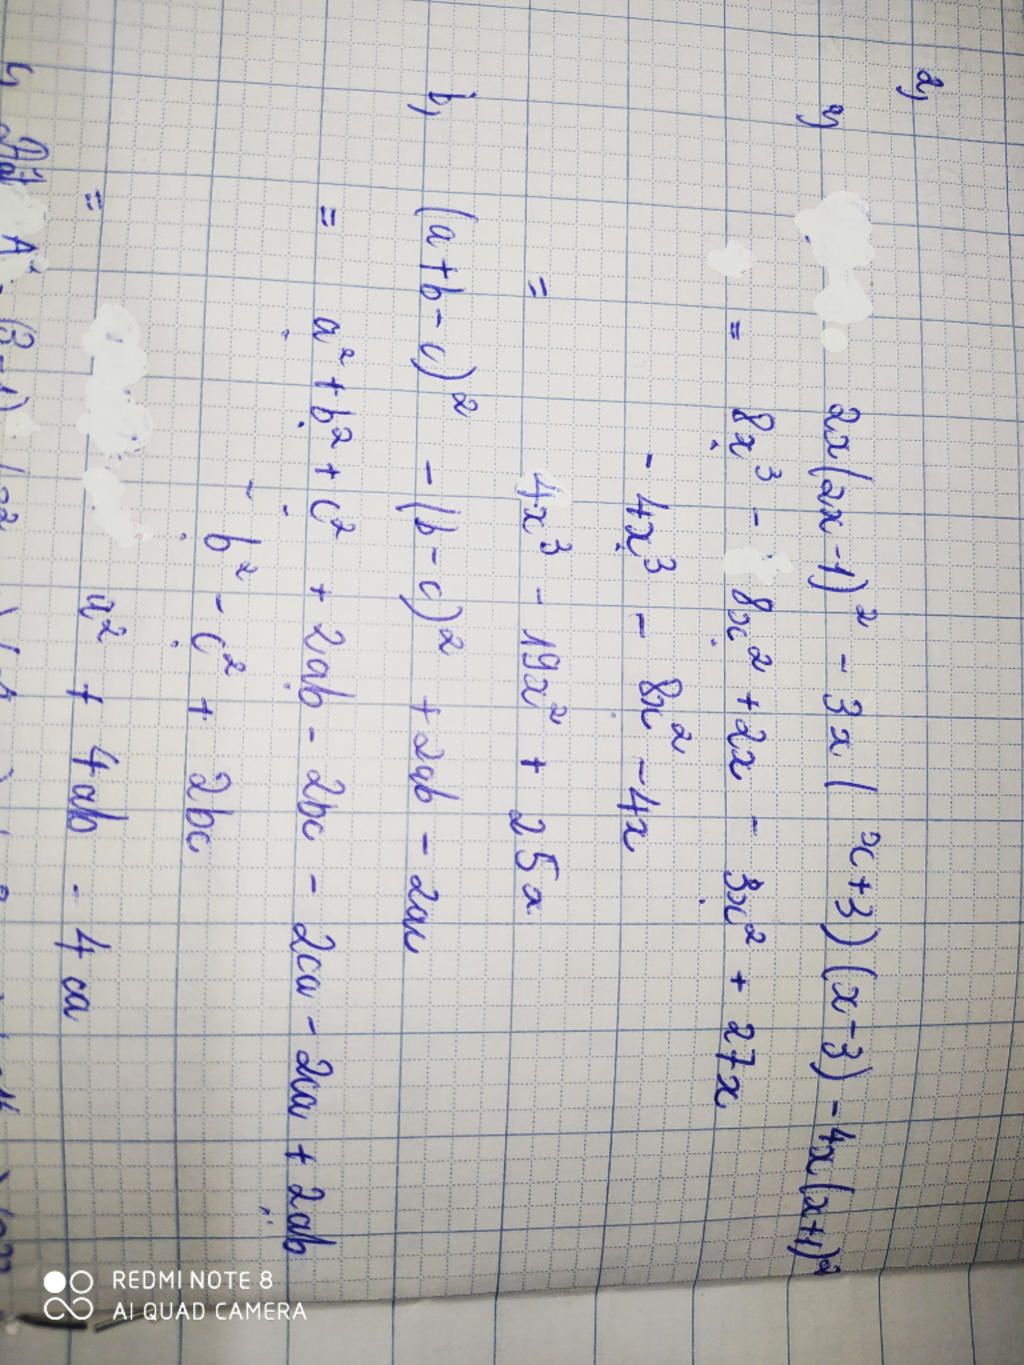 2,
a,
2x(2x-1)² - 3x(x+3)(x-3) - 4x(x+1)²
= 8x³ - 8x² + 2x - 3x² + 27x
- 4x³ - 8x² - 4x
= 4x³ - 19x² + 25x
b, (a+b-c)² - (b-c)² + 2ab - 2ac
= a² + b² + c² + 2ab - 2bc - 2ca - 2ca + 2ab
- b² - c² + 2bc
= a² + 4ab - 4ca
REDMI NOTE 8
AI QUAD CAMERA